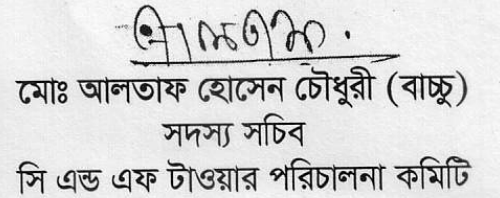 মোঃ আলতাফ হোসেন চৌধুরী (বাচ্চু)
সদস্য সচিব
সি এন্ড এফ টাওয়ার পরিচালনা কমিটি